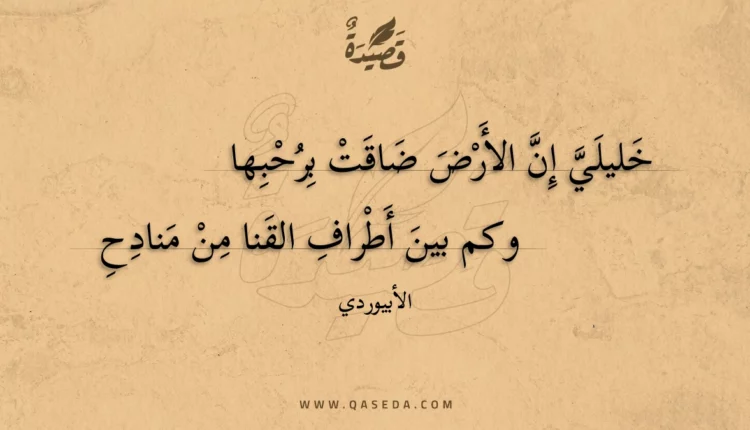 قَصِيْدَةٌ
خَليلَيَّ إِنَّ الأَرْضَ ضَاقَتْ بِرُحْبِها
وكم بينَ أَطْرافِ القَنا مِنْ مَنادِحِ
الأبيوردي
WWW.QASEDA.COM